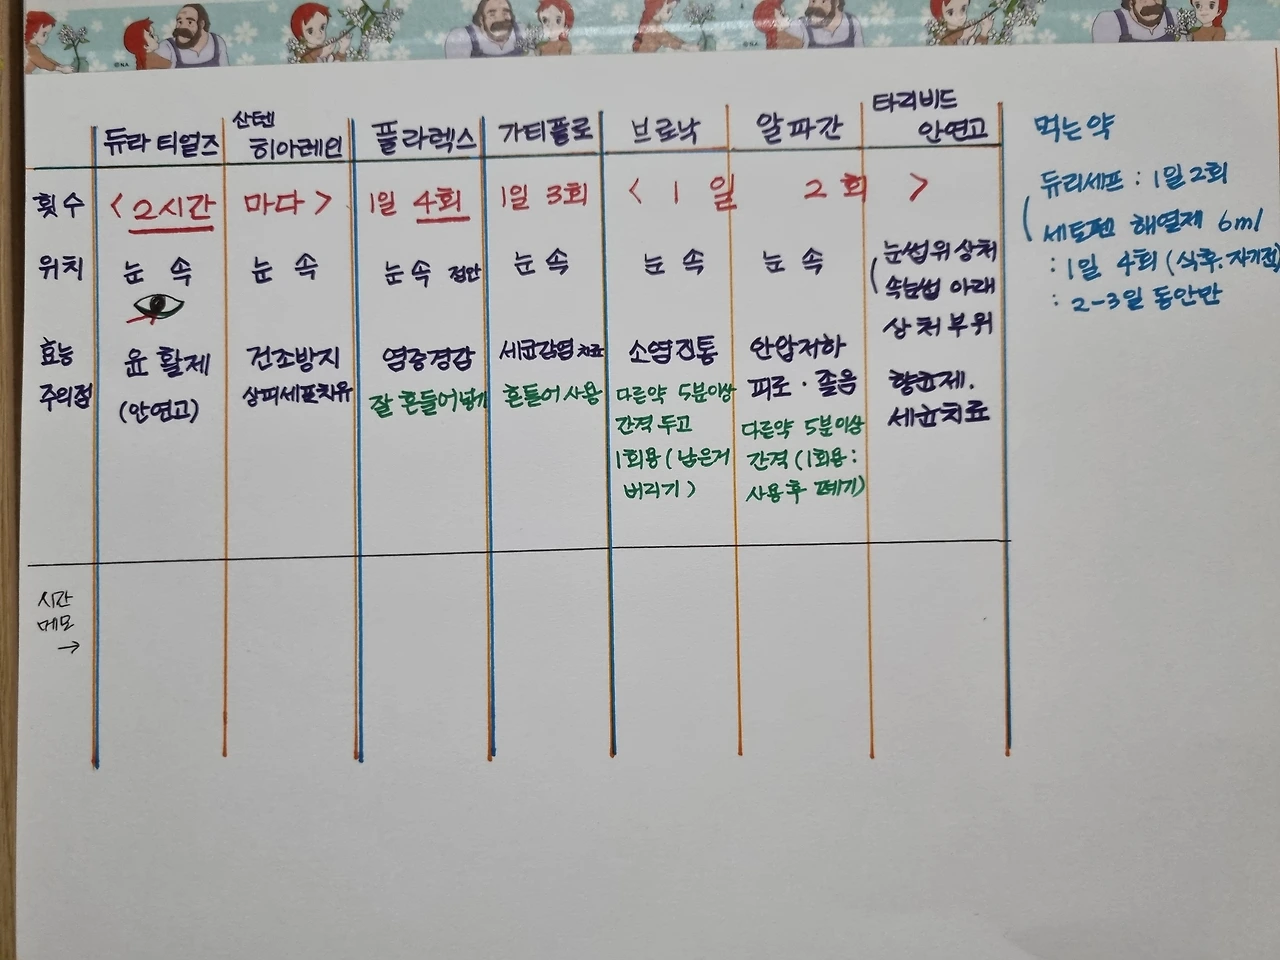 듀라티얼즈 산텐 히아레인 플라렉스 가티플로 브로낙 알파간 타리비드 안연고
횟수 <2시간 마다> 1일 4회 1일 3회 <1일 2회>
위치 눈 속 눈 속 눈 속 점안 눈 속 눈 속 눈 속 눈썹위상처
속눈썹 아래
상처부위
효능 윤활제 건조방지 염증경감 세균감염치료 소염진통 안압저하
주의점 (안연고) 상피세포치유 잘 흔들어넣기 흔들어사용 다른약 5분이상 피로·졸음 향균제.
간격 두고 다른약 5분이상 세균치료
1회용(남은거 간격(1회용:
버리기) 사용후 폐기)
시간
메모
→
먹는약
듀리세프 : 1일 2회
세토펜 해열제 6ml
: 1일 4회(식후.자기전
: 2-3일 동안만